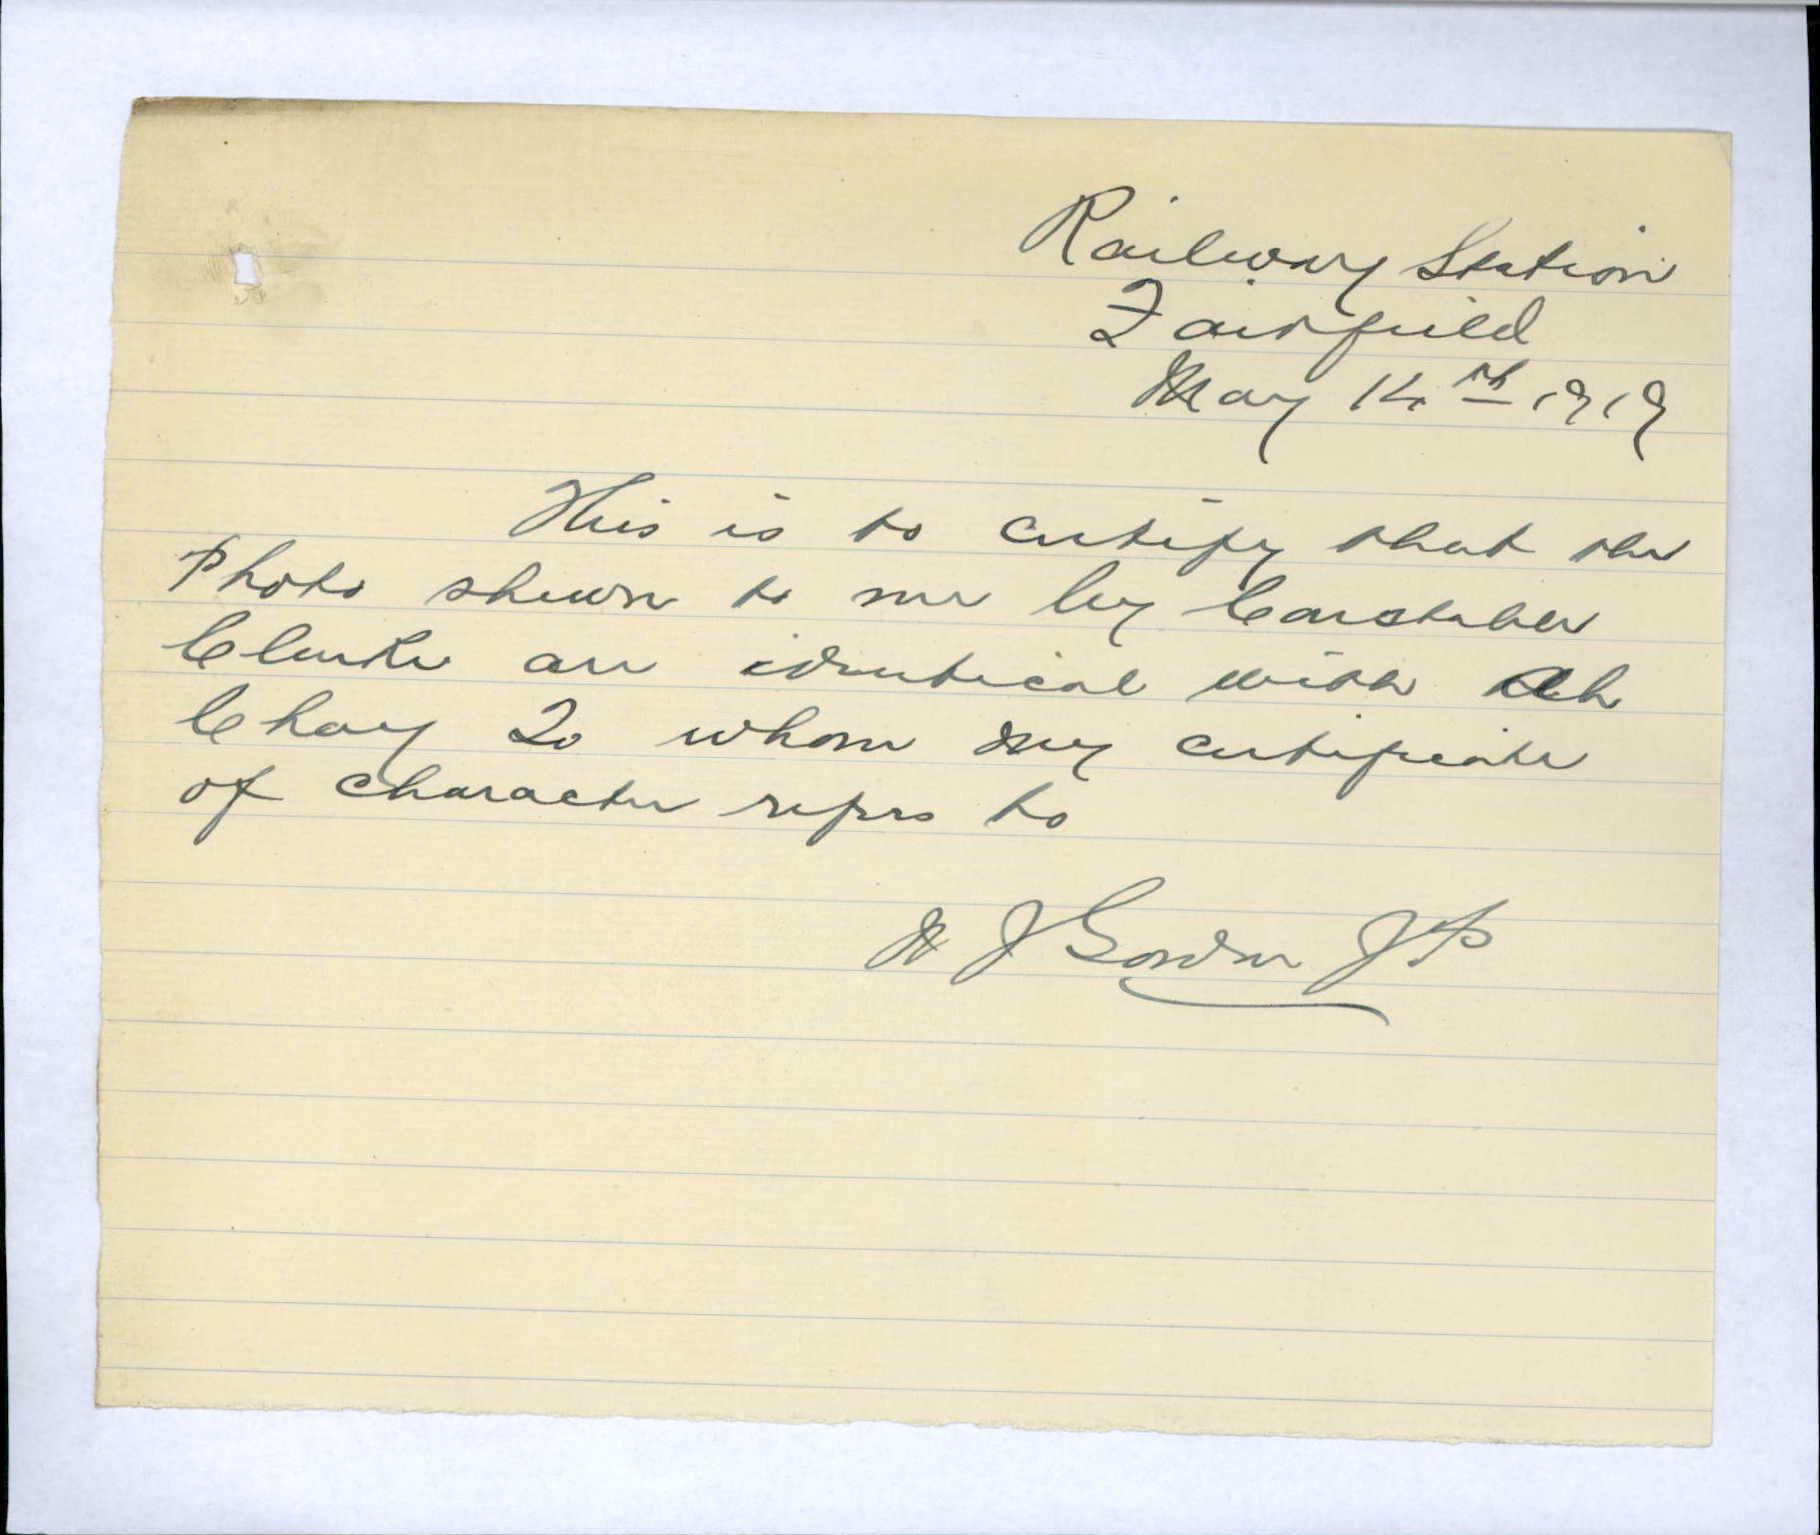 Railway Station
Fairfield
May 14th 1919
This is to certify that the
Photo shewn to me by Constable
Clarke are identical with Ah
Chay To whom my certificate
of character refers to
W J Gordon J P